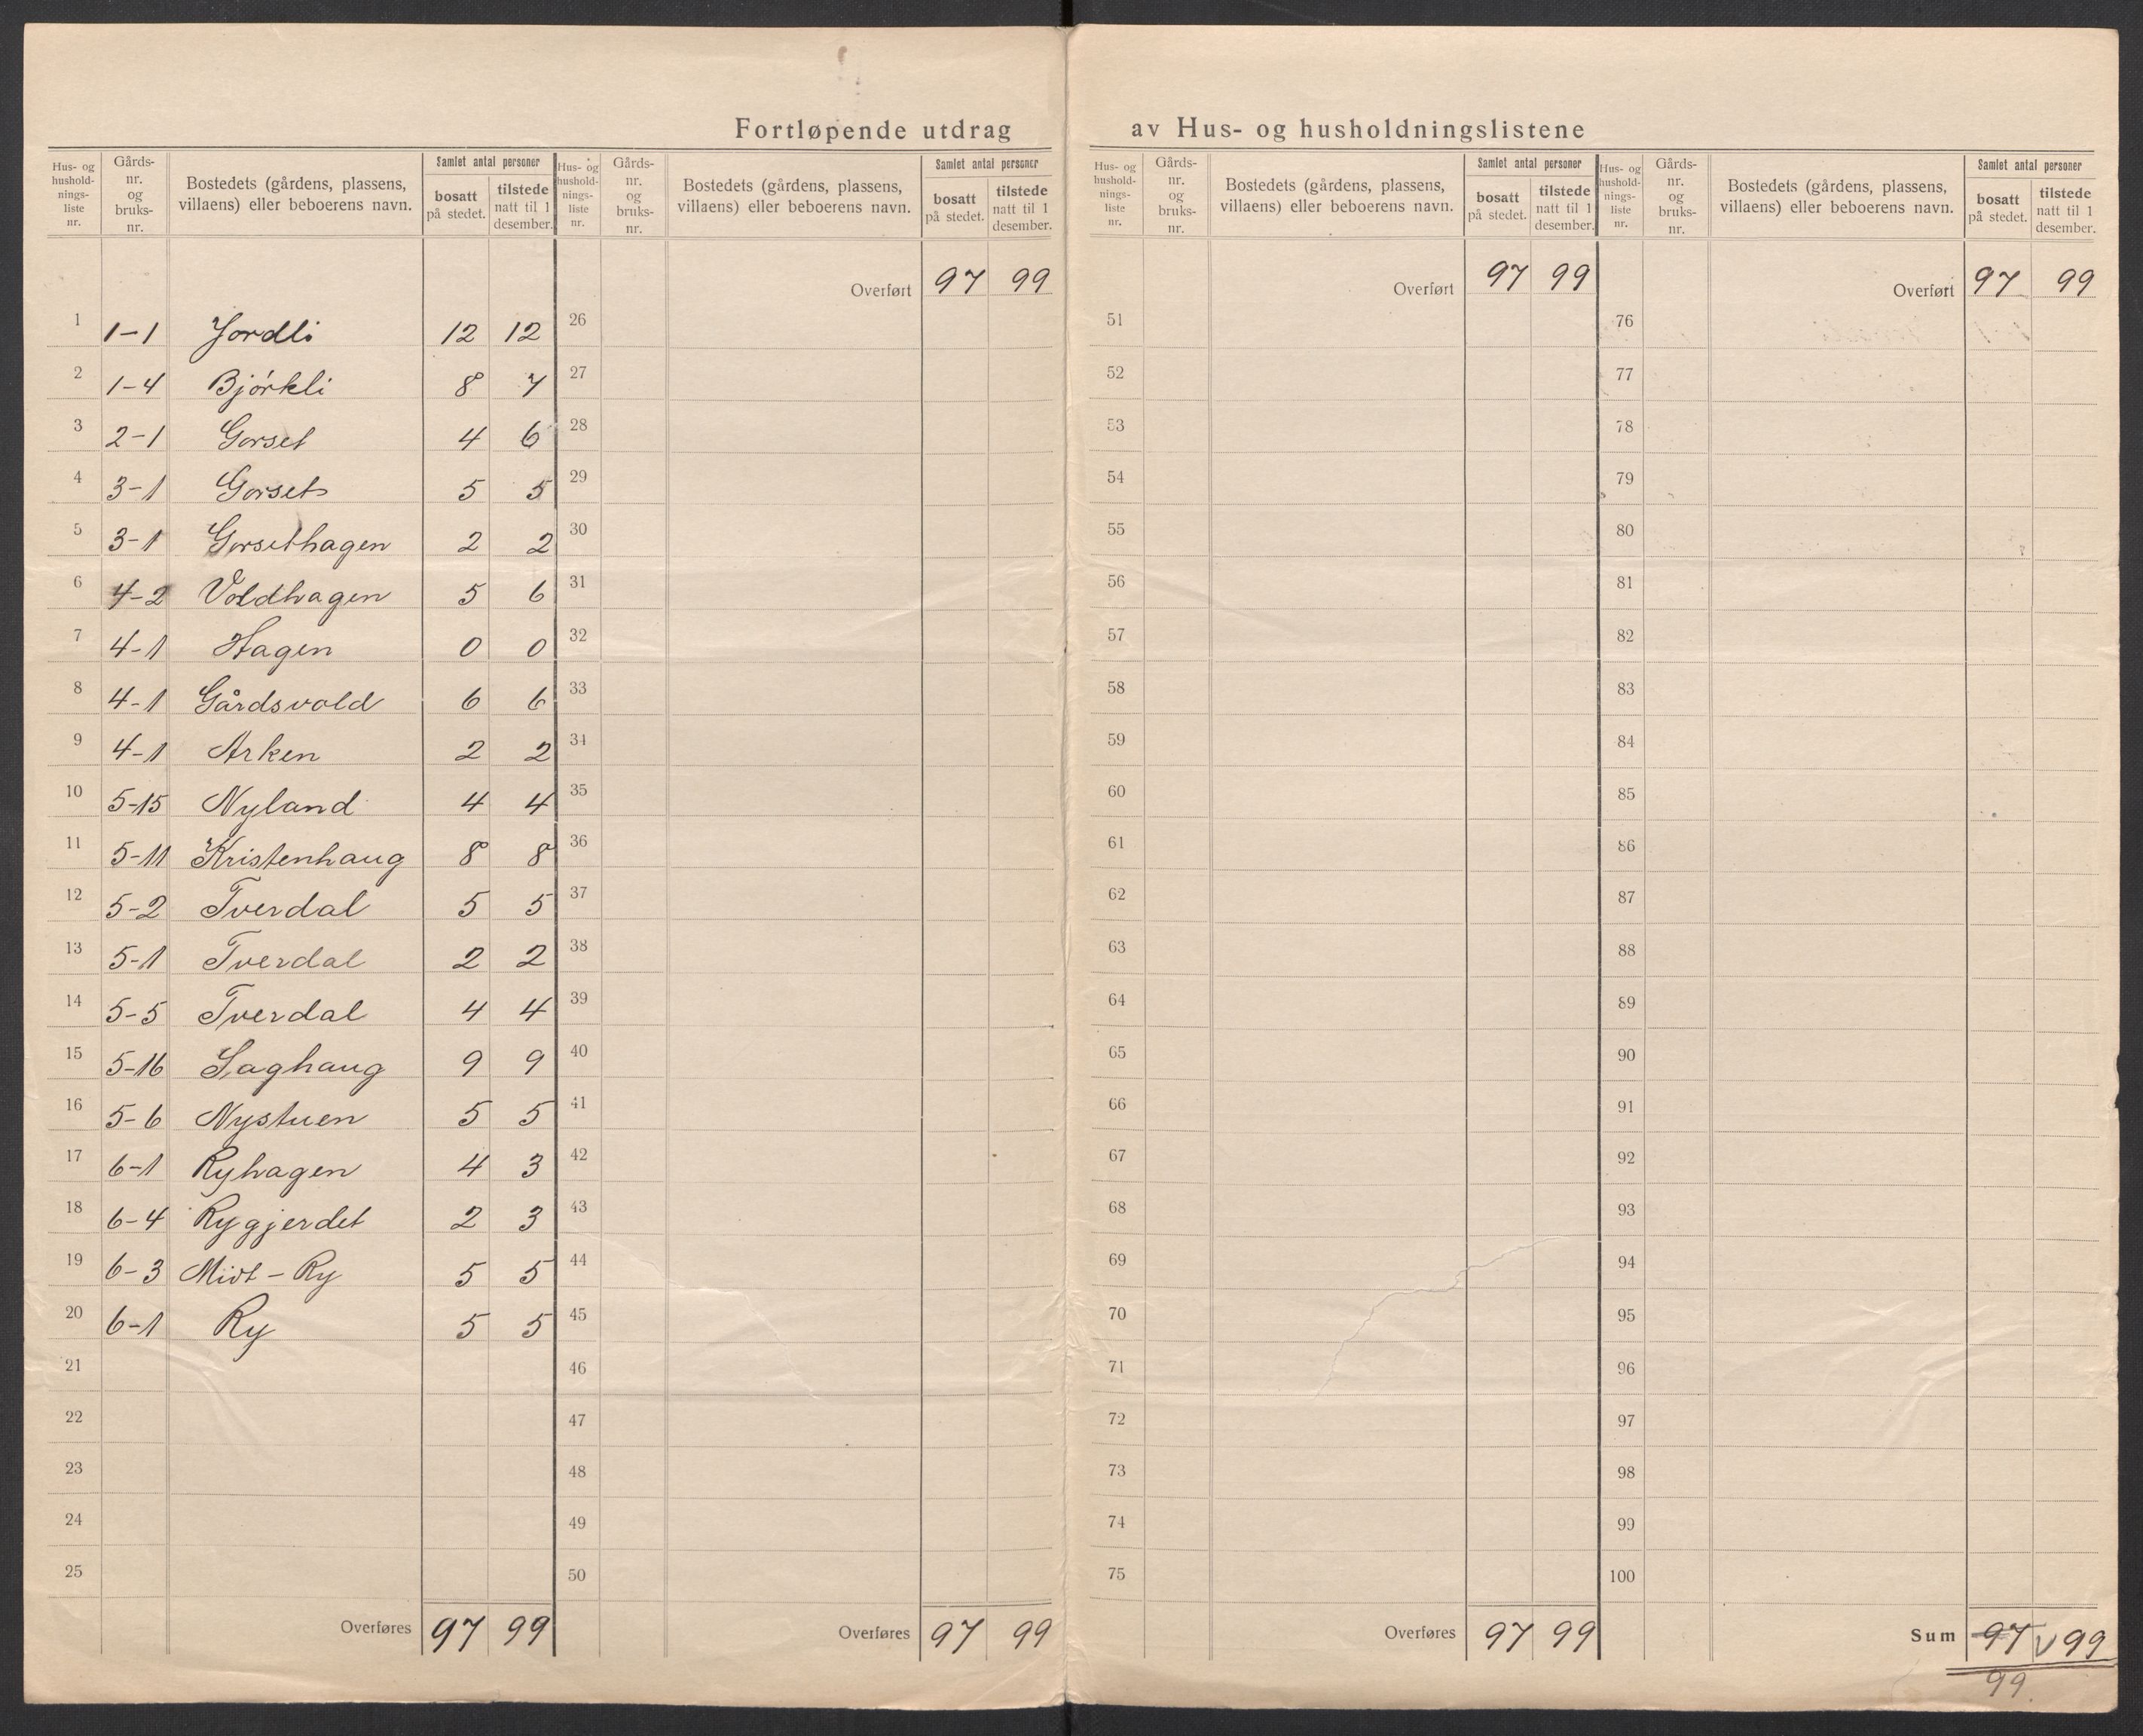 Fortløpende utdrag av Hus- og husholdningslistene
Hus- og hushold- nings- liste nr. | Gårds- nr. og bruks- nr. | Bostedets (gårdens, plassens, villaens) eller beboerens navn. | Samlet antal personer | bosatt på stedet. | tilstede natt til 1 desember.
1 1-1 Jordli 12 12
2 1-4 Bjørkli 8 7
3 2-1 Gorset 4 6
4 3-1 Gorset 5 5
5 3-1 Gorsethagen 2 2
6 4-2 Voldhagen 5 6
7 4-1 Hagen 0 0
8 4-1 Gårdsvold 6 6
9 4-1 Arken 2 2
10 5-15 Nyland 4 4
11 5-11 Kristenhaug 8 8
12 5-2 Tverdal 5 5
13 5-1 Tverdal 2 2
14 5-5 Tverdal 4 4
15 5-16 Saghaug 9 9
16 5-6 Nystuen 5 5
17 6-1 Ryhagen 4 3
18 6-4 Rygjerdet 2 3
19 6-3 Midt-Ry 5 5
20 6-1 Ry 5 5
21
22
23
24
25
Overføres 97 99
Hus- og hushold- nings- liste nr. | Gårds- nr. og bruks- nr. | Bostedets (gårdens, plassens, villaens) eller beboerens navn. | Samlet antal personer | bosatt på stedet. | tilstede natt til 1 desember.
Overført 97 99
26
27
28
29
30
31
32
33
34
35
36
37
38
39
40
41
42
43
44
45
46
47
48
49
50
Overføres 97 99
Hus- og hushold- nings- liste nr. | Gårds- nr. og bruks- nr. | Bostedets (gårdens, plassens, villaens) eller beboerens navn. | Samlet antal personer | bosatt på stedet. | tilstede natt til 1 desember.
Overført 97 99
51
52
53
54
55
56
57
58
59
60
61
62
63
64
65
66
67
68
69
70
71
72
73
74
75
Overføres 97 99
Hus- og hushold- nings- liste nr. | Gårds- nr. og bruks- nr. | Bostedets (gårdens, plassens, villaens) eller beboerens navn. | Samlet antal personer | bosatt på stedet. | tilstede natt til 1 desember.
Overført 97 99
76
77
78
79
80
81
82
83
84
85
86
87
88
89
90
91
92
93
94
95
96
97
98
99
100
Sum 97 v 99
99.